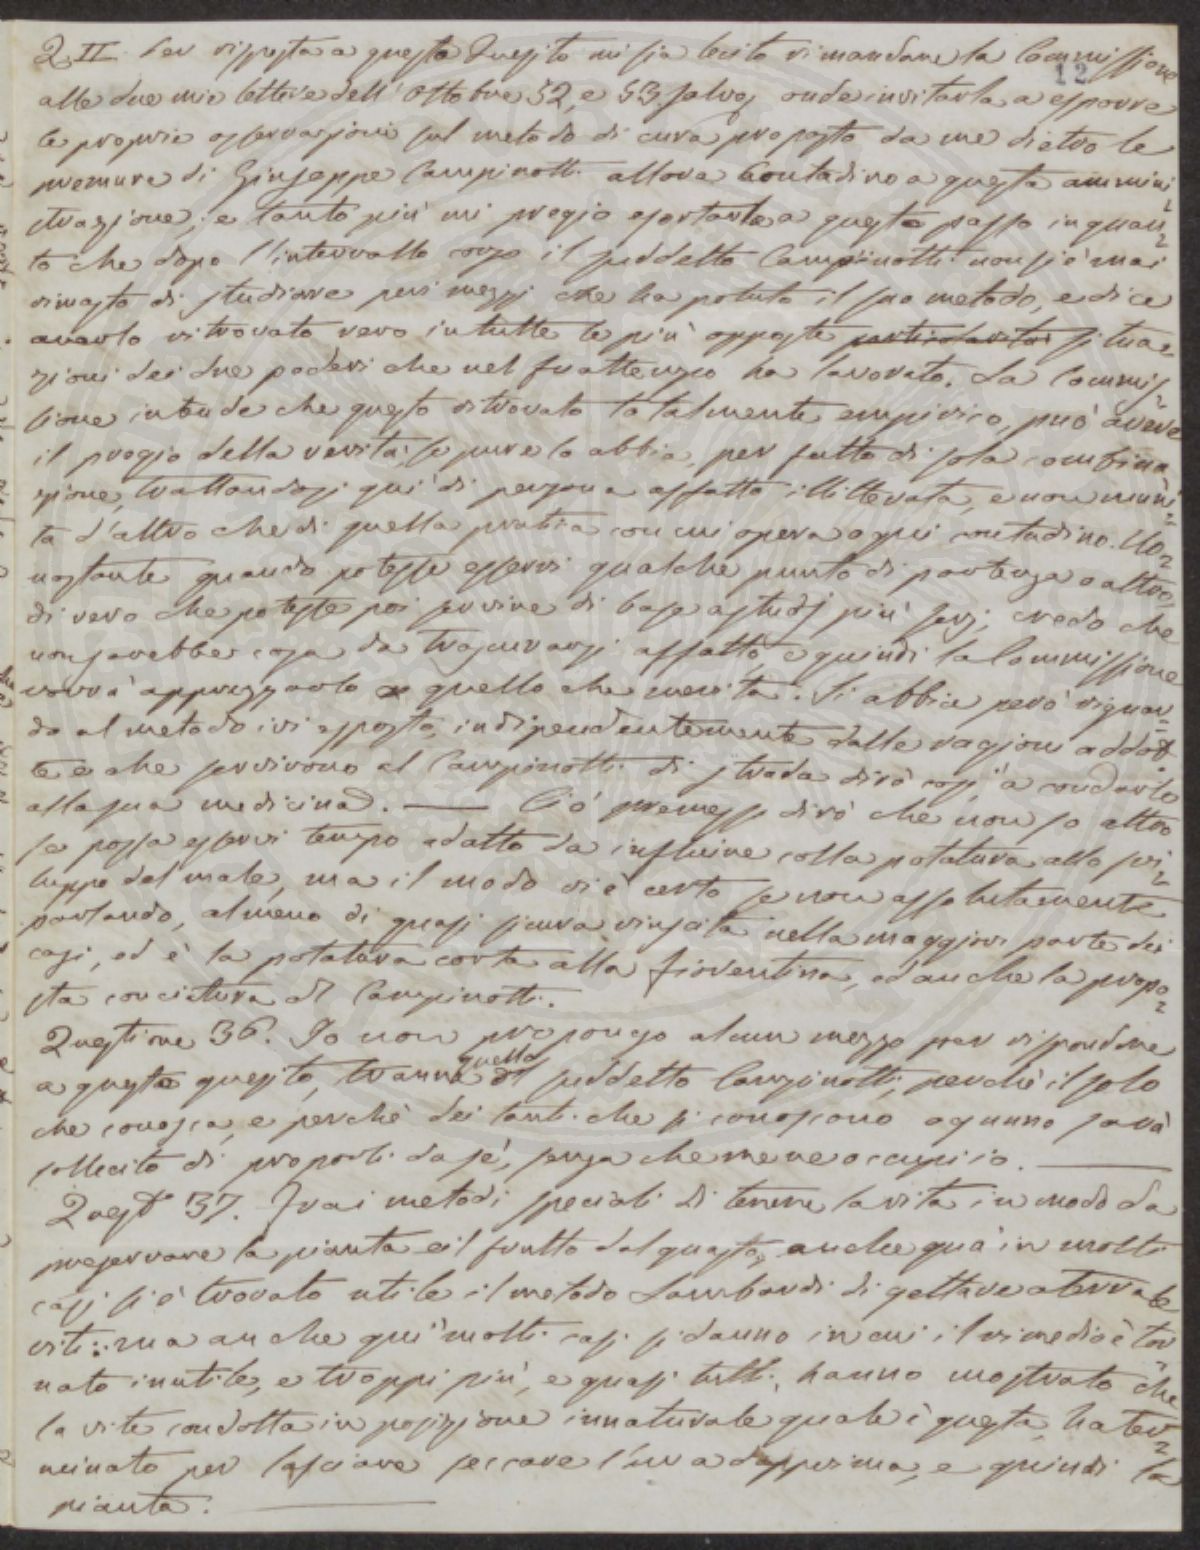 12
Q. II. Per risposta a questo Quesito mi sia lecito rimandare la Commissione
alle due mie lettere dell'Ottobre 52, e 53 onde invitarla a esporre
le proprie osservazioni sul metodo di cura proposto da me dietro le
premure di Giuseppe Campinotti allora Contadino a questa ammini=
strazione; e tanto più mi pregio esortarla a questo passo in quan=
to che dopo l'intervallo corso il suddetto Campinotti non si è mai
rimasto di studiare pei mezzi che ha potuto il suo metodo, e dice
averlo ritrovato vero in tutte le più opposte particolarità situa=
zioni dei due poderi che nel frattempo ha lavorato. La Commis=
sione intende che questo ritrovato totalmente empirico, può avere
il pregio della verità, se pure lo abbia, per fatto di sola combina
zione, trattandosi quì di persona affatto illitterata, e non muni=
ta d'altro che di quella pratica con cui opera ogni contadino. No=
nostante quando potesse esservi qualche punto di partenza o altro,
di vero che potesse poi servire di base a studj più serj; credo che
non sarebbe cosa da trascurarsi affatto, e quindi la Commissione
vorrà apprezzarlo quello che merita. Si abbia però riguar=
do al metodo ivi esposto, indipendentemente dalle ragioni addot=
te e che servirono al Campinotti di strada dirò così a condurlo
alla sua medicina. — Ciò premesso dirò che non so altro
se possa esservi tempo adatto da influire colla potatura allo svi=
luppo del male, ma il modo vi è certo se non assolutamente
parlando, almeno di quasi sicura riuscita nella maggior parte dei
casi, ed è la potatura corta alla fiorentina, ed anche la propo=
sta conciatura del Campinotti.
Questione 36. Io non propongo alcun mezzo per rispondere
a questo quesito, tranne quello del suddetto Campinotti, perchè il solo
che conosca, e perchè dei tanti che si conoscono ognuno sarà
sollecito di proporli da sè, senza che me ne occupi io. —
Quest.e 37. Frai metodi speciali di tenere la vite in modo da
preservare la pianta e il frutto dal guasto, anche quà in molti
casi si è trovato utile il metodo Lambardi di gettare a terra le
viti: ma anche quì molti casi si danno in cui il rimedio è tor
nato inutile, e troppi più, e quasi tutti, hanno mostrato che
la vite condotta in posizione innaturale quale è questa, ha ter=
minato per lasciare seccare l'uva dapprima, e quindi la
pianta. —